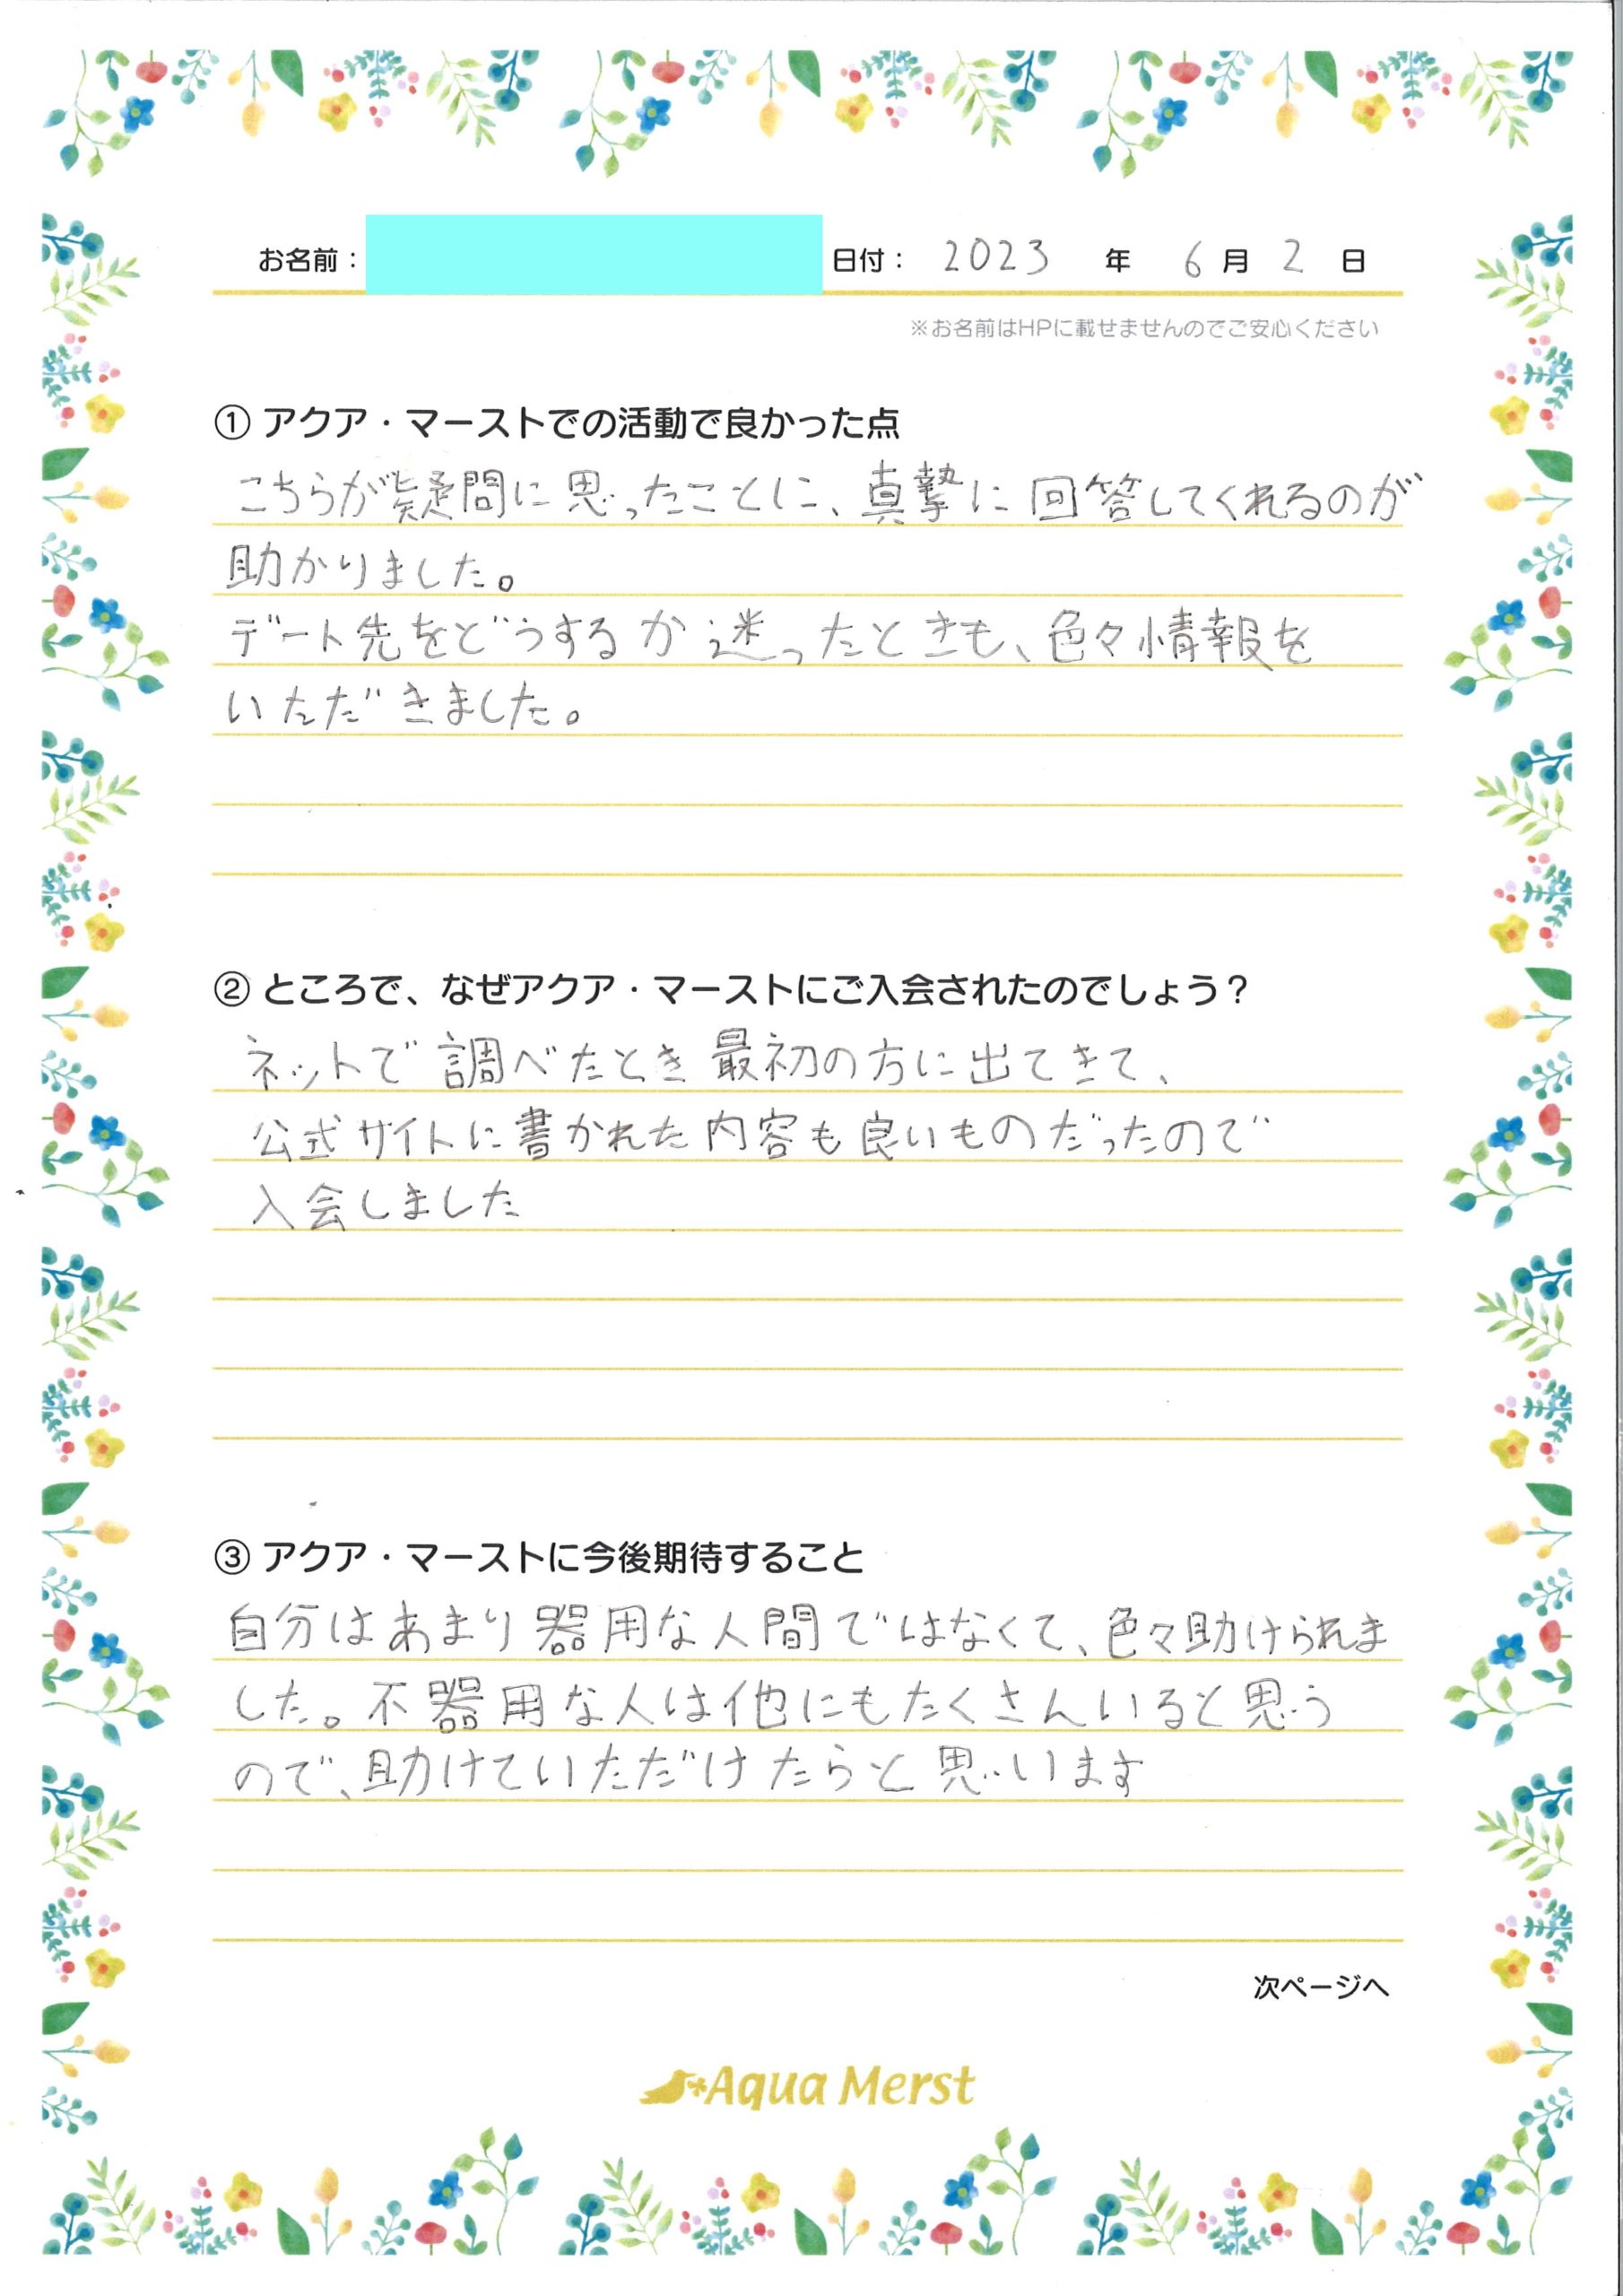 お名前： 日付： 2023 年 6 月 2 日
※お名前はHPに載せませんのでご安心ください
① アクア・マーストでの活動で良かった点
こちらが疑問に思ったことに、真摯に回答してくれるのが
助かりました。
デート先をどうするか迷ったときも、色々情報を
いただきました。
② ところで、なぜアクア・マーストにご入会されたのでしょう？
ネットで調べたとき最初の方に出てきて、
公式サイトに書かれた内容も良いものだったので
入会しました
③ アクア・マーストに今後期待すること
自分はあまり器用な人間ではなくて、色々助けられま
した。不器用な人は他にもたくさんいると思う
ので、助けていただけたらと思います
次ページへ
Aqua Merst